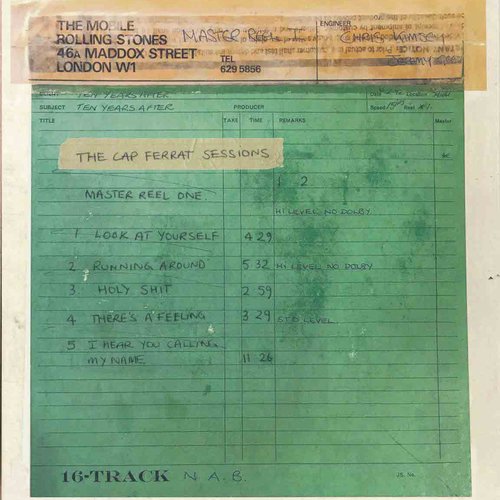 THE MOBILE
ROLLING STONES
46A MADDOX STREET
LONDON W1
TEL
629 5856
MASTER REEL I
ENGINEER
CHRIS KIMSEY
TEN YEARS AFTER
Date
Location
SUBJECT TEN YEARS AFTER
PRODUCER
Speed 15 Reel
TITLE TAKE TIME REMARKS Master
THE CAP FERRAT SESSIONS
1 2
MASTER REEL ONE.
HI LEVEL NO DOLBY
1 LOOK AT YOURSELF 4 29
2 RUNNING AROUND 5 32 HI LEVEL NO DOLBY
3 HOLY SHIT 2 59
4 THERE'S A FEELING 3 29 STD LEVEL
5 I HEAR YOU CALLING
MY NAME 11 26
16-TRACK N.A.B.
JS. No.